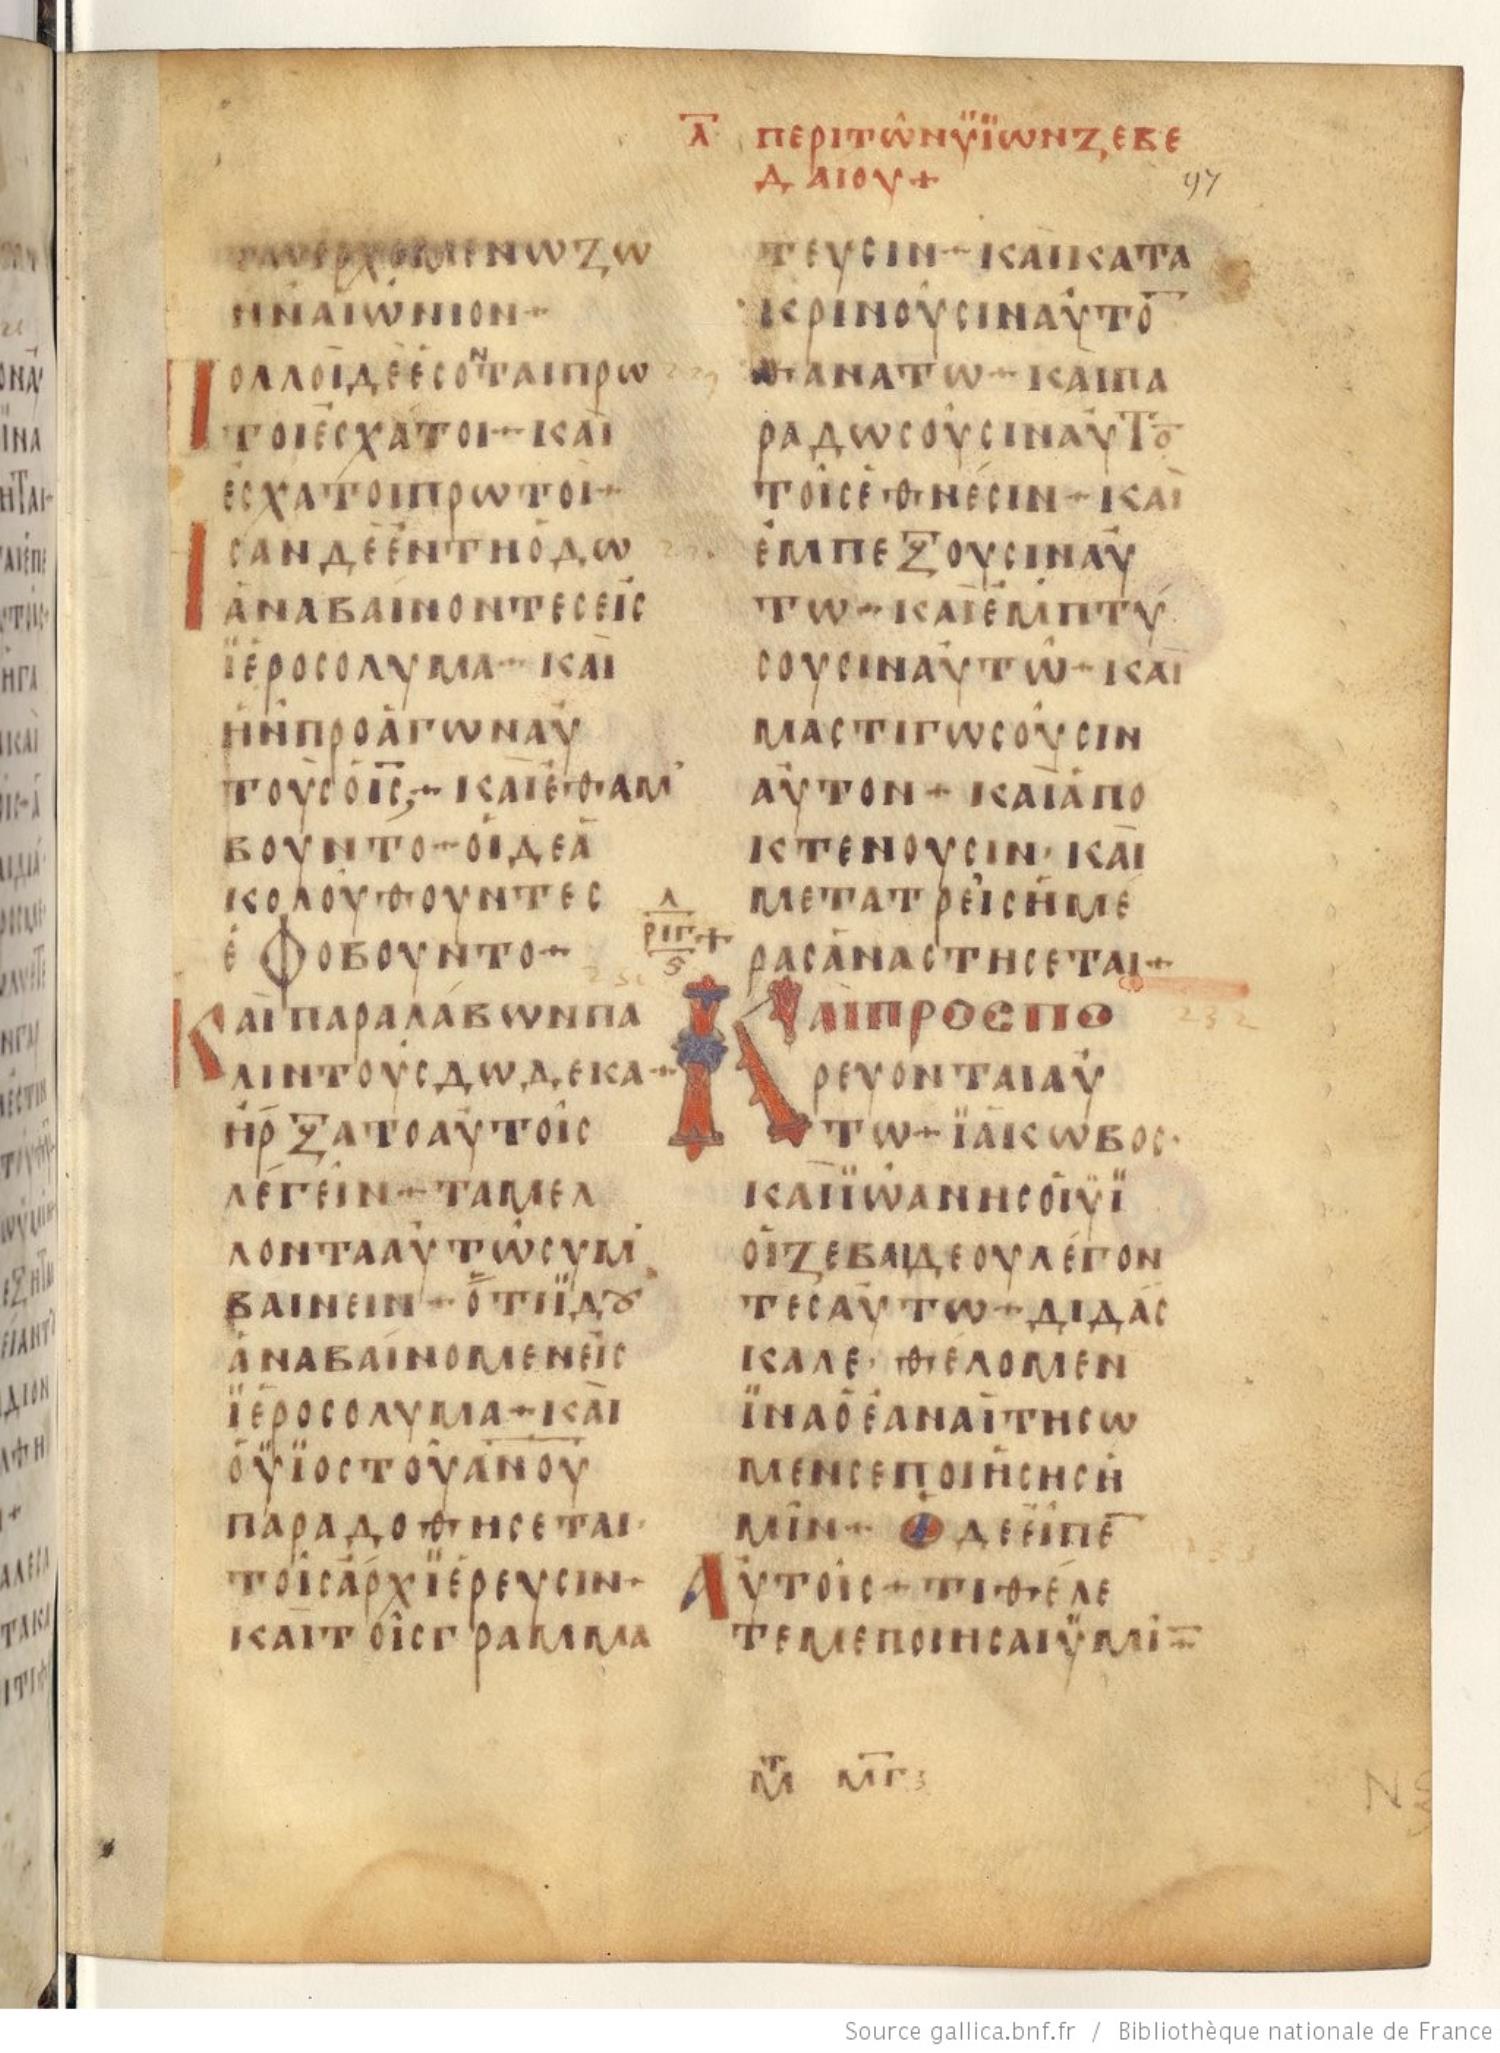 Λ ΠΕΡΙΤΩΝΥΪΩΝΖΕΒΕ
ΔΑΙΟΥ+
97
ΤΩΕΡΧΟΜΕΝΩΖΩ
ΗΝΑΙΩΝΙΟΝ+
ΠΟΛΛΟΙΔΕΕΣΟΝΤΑΙΠΡΩ
ΤΟΙΕΣΧΑΤΟΙ+ΚΑΙ
ΕΣΧΑΤΟΙΠΡΩΤΟΙ+
ΙΣΑΝΔΕΕΝΤΗΟΔΩ
ΑΝΑΒΑΙΝΟΝΤΕΣΕΙΣ
ΪΕΡΟΣΟΛΥΜΑ+ΚΑΙ
ΗΝΠΡΟΑΓΩΝΑΥ
ΤΟΥΣΟΙΣ+ΚΑΙΕΘΑΜ
ΒΟΥΝΤΟ+ΟΙΔΕΑ
ΚΟΛΟΥΘΟΥΝΤΕΣ
ΕΦΟΒΟΥΝΤΟ+
ΚΑΙΠΑΡΑΛΑΒΩΝΠΑ
ΛΙΝΤΟΥΣΔΩΔΕΚΑ+
ΗΡΞΑΤΟΑΥΤΟΙΣ
ΛΕΓΕΙΝ+ΤΑΜΕΛ
ΛΟΝΤΑΑΥΤΩΣΥΜ
ΒΑΙΝΕΙΝ+ΟΤΙΪΔȢ
ΑΝΑΒΑΙΝΟΜΕΝΕΙΣ
ΪΕΡΟΣΟΛΥΜΑ+ΚΑΙ
ΟΥΪΟΣΤΟΥΑΝΟΥ
ΠΑΡΑΔΟΘΗΣΕΤΑΙ·
ΤΟΙΣΑΡΧΪΕΡΕΥΣΙΝ+
ΚΑΙΤΟΙΣΓΡΑΜΜΑ
ΤΕΥΣΙΝ+ΚΑΙΚΑΤΑ
ΚΡΙΝΟΥΣΙΝΑΥΤΟ̅
ΘΑΝΑΤΩ+ΚΑΙΠΑ
ΡΑΔΩΣΟΥΣΙΝΑΥΤΟ̅
ΤΟΙΣΕΘΝΕΣΙΝ+ΚΑΙ
ΕΜΠΕΞΟΥΣΙΝΑΥ
ΤΩ+ΚΑΙΕΜΠΤΥ
ΣΟΥΣΙΝΑΥΤΩ+ΚΑΙ
ΜΑΣΤΙΓΩΣΟΥΣΙΝ
ΑΥΤΟΝ+ΚΑΙΑΠΟ
ΚΤΕΝΟΥΣΙΝ·ΚΑΙ
ΜΕΤΑΤΡΕΙΣΗΜΕ
ΡΑΣΑΝΑΣΤΗΣΕΤΑΙ+
Λ
ΡΙΓ+
ς
ΚΑΙΠΡΟΣΠΟ
ΡΕΥΟΝΤΑΙΑΥ
ΤΩ+ΪΑΚΩΒΟΣ·
ΚΑΙΪΩΑΝΗΣΟΙΥΪ
ΟΙΖΕΒΑΙΔΕΟΥΛΕΓΟΝ
ΤΕΣΑΥΤΩ+ΔΙΔΑΣ
ΚΑΛΕ·ΘΕΛΟΜΕΝ
ΪΝΑΟΕΑΝΑΙΤΗΣΩ
ΜΕΝΣΕΠΟΙΗΣΗΣΗ
ΜΙΝ+ΟΔΕΕΙΠΕ̅
ΑΥΤΟΙΣ+ΤΙΘΕΛΕ
ΤΕΜΕΠΟΙΗΣΑΙΥΜΙ̅
ΜΓ
Source gallica.bnf.fr / Bibliothèque nationale de France